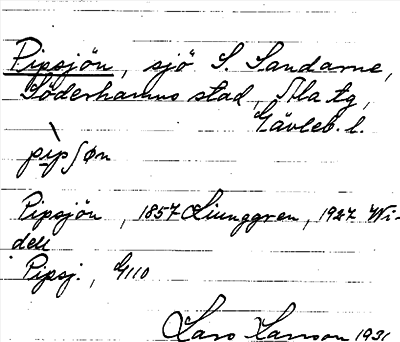 Pipsjön, sjö S. Sandarne,
Söderhamns stad, Ala tg,
Gävleb. l.
pipʃøn
Pipsjön, 1857 Ljunggren, 1927 Wi-
dell
Pipsj., G110
Lars Larsson 1931